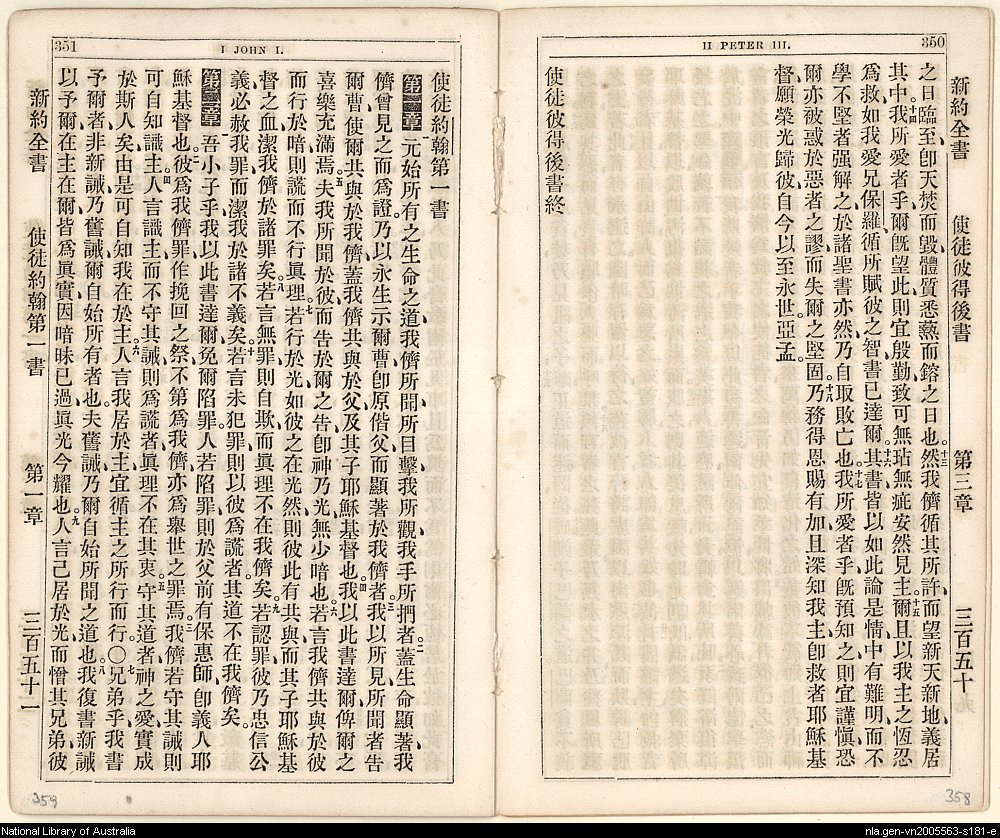 350
II PETER III.
新約全書 使徒彼得後書 第三章 三百五十
之日臨至、卽天焚而毀、體質悉爇而鎔之日也。十三然我儕循其所許、而望新天新地、義居
其中。十四我所愛者乎、爾旣望此、則宜殷勤致可無玷無疵、安然見主。十五爾且以我主之恆忍
爲救、如我愛兄保羅、循所賦彼之智、書已達爾。十六其書皆以如此論是情、中有難明、而不
學不堅者强解之、於諸聖書亦然、乃自取敗亡也。十七我所愛者乎、旣預知之、則宜謹愼、恐
爾亦被惑於惡者之謬、而失爾之堅固。十八乃務得恩賜有加、且深知我主卽救者耶穌基
督、願榮光歸彼、自今以至永世、亞孟。
使徒彼得後書終
358
351
I JOHN I.
使徒約翰第一書
第一章 元始所有之生命之道、我儕所聞、所目擊、我所觀、我手所捫者。二蓋生命顯著、我
儕曾見之而爲證、乃以永生示爾曹、卽原偕父而顯著於我儕者。三我以所見所聞者、告
爾曹、使爾共與於我儕、蓋我儕共與於父及其子耶穌基督也。四我以此書達爾、俾爾之
喜樂充滿焉。五夫我所聞於彼、而告於爾之告、卽神乃光、無少暗也。六若言我儕共與於彼、
而行於暗、則謊而不行眞理。七若行於光、如彼之在光、然則彼此有共與、而其子耶穌基
督之血、潔我儕於諸罪矣。八若言無罪、則自欺而眞理不在我儕矣。九若認罪、彼乃忠信公
義、必赦我罪、而潔我於諸不義矣。十若言未犯罪、則以彼爲謊者、其道不在我儕矣。
第二章 一吾小子乎、我以此書達爾、免爾陷罪、人若陷罪、則於父前有保惠師、卽義人耶
穌基督也。二彼爲我儕罪作挽回之祭、不第爲我儕、亦爲舉世之罪焉。三我儕若守其誡、則
可自知識主。四人言識主、而不守其誡、則爲謊者、眞理不在其衷。五守其道者、神之愛實成
於斯人矣、由是可自知我在於主。六人言我居於主、宜循主之所行而行。〇七兄弟乎、我書
予爾者、非新誡、乃舊誡、爾自始所有者也、夫舊誡、乃爾自始所聞之道也。八我復書新誡
以予爾、在主在爾、皆爲眞實、因暗昧已過、眞光今耀也。九人言己居於光、而憎其兄弟、彼
新約全書 使徒約翰第一書 第一章 三百五十一
359
National Library of Australia
nla.gen-vn2005563-s181-e